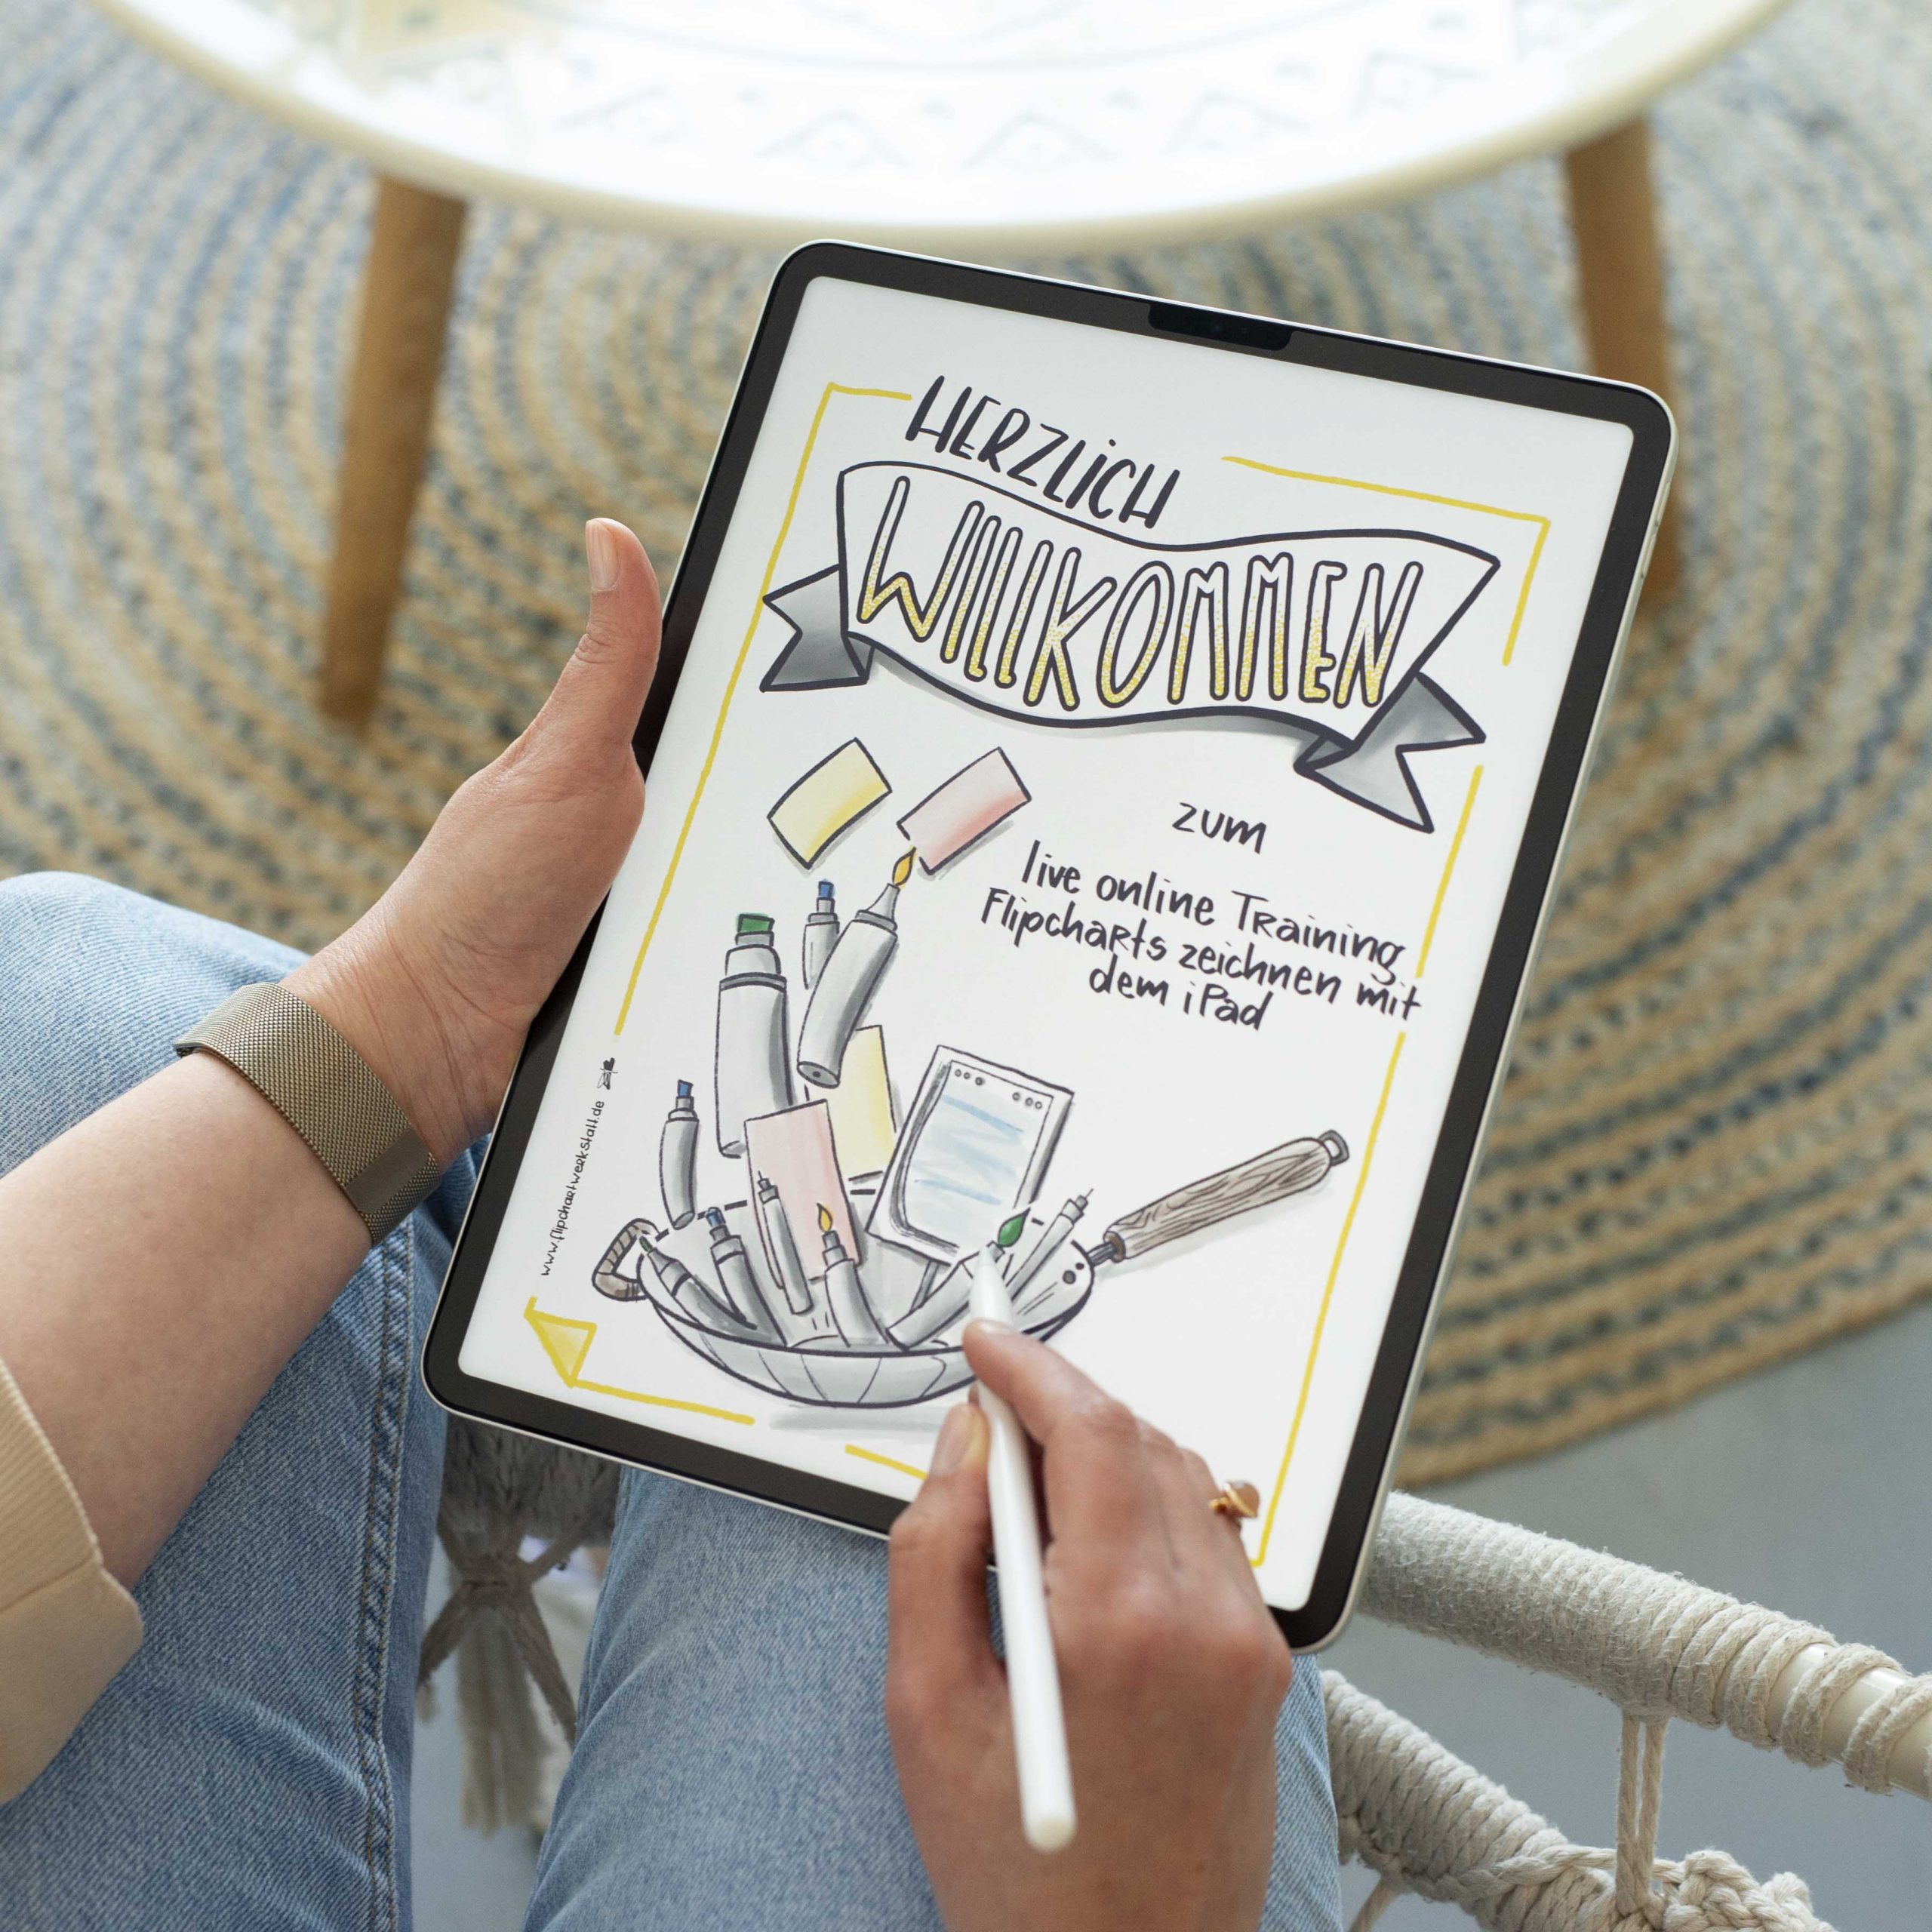 HERZLiCH
WILLKOMMEN
zum
live online Training
Flipcharts zeichnen mit
dem iPad
www.flipchartwerkstatt.de